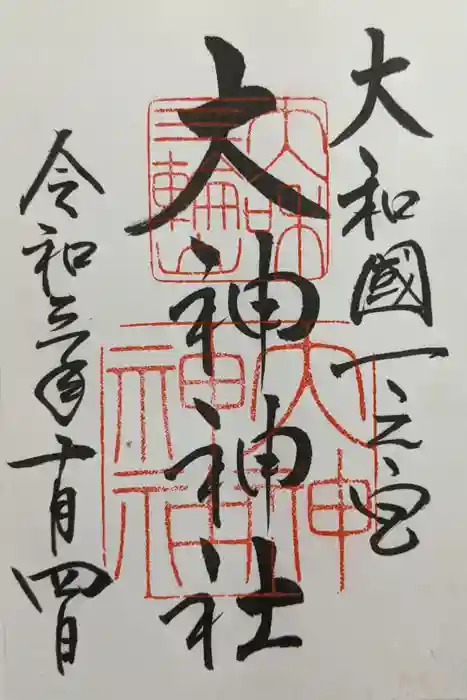 大和國一之宮
大和
三輪山
大神神社
大神
神社
令和三年十月四日